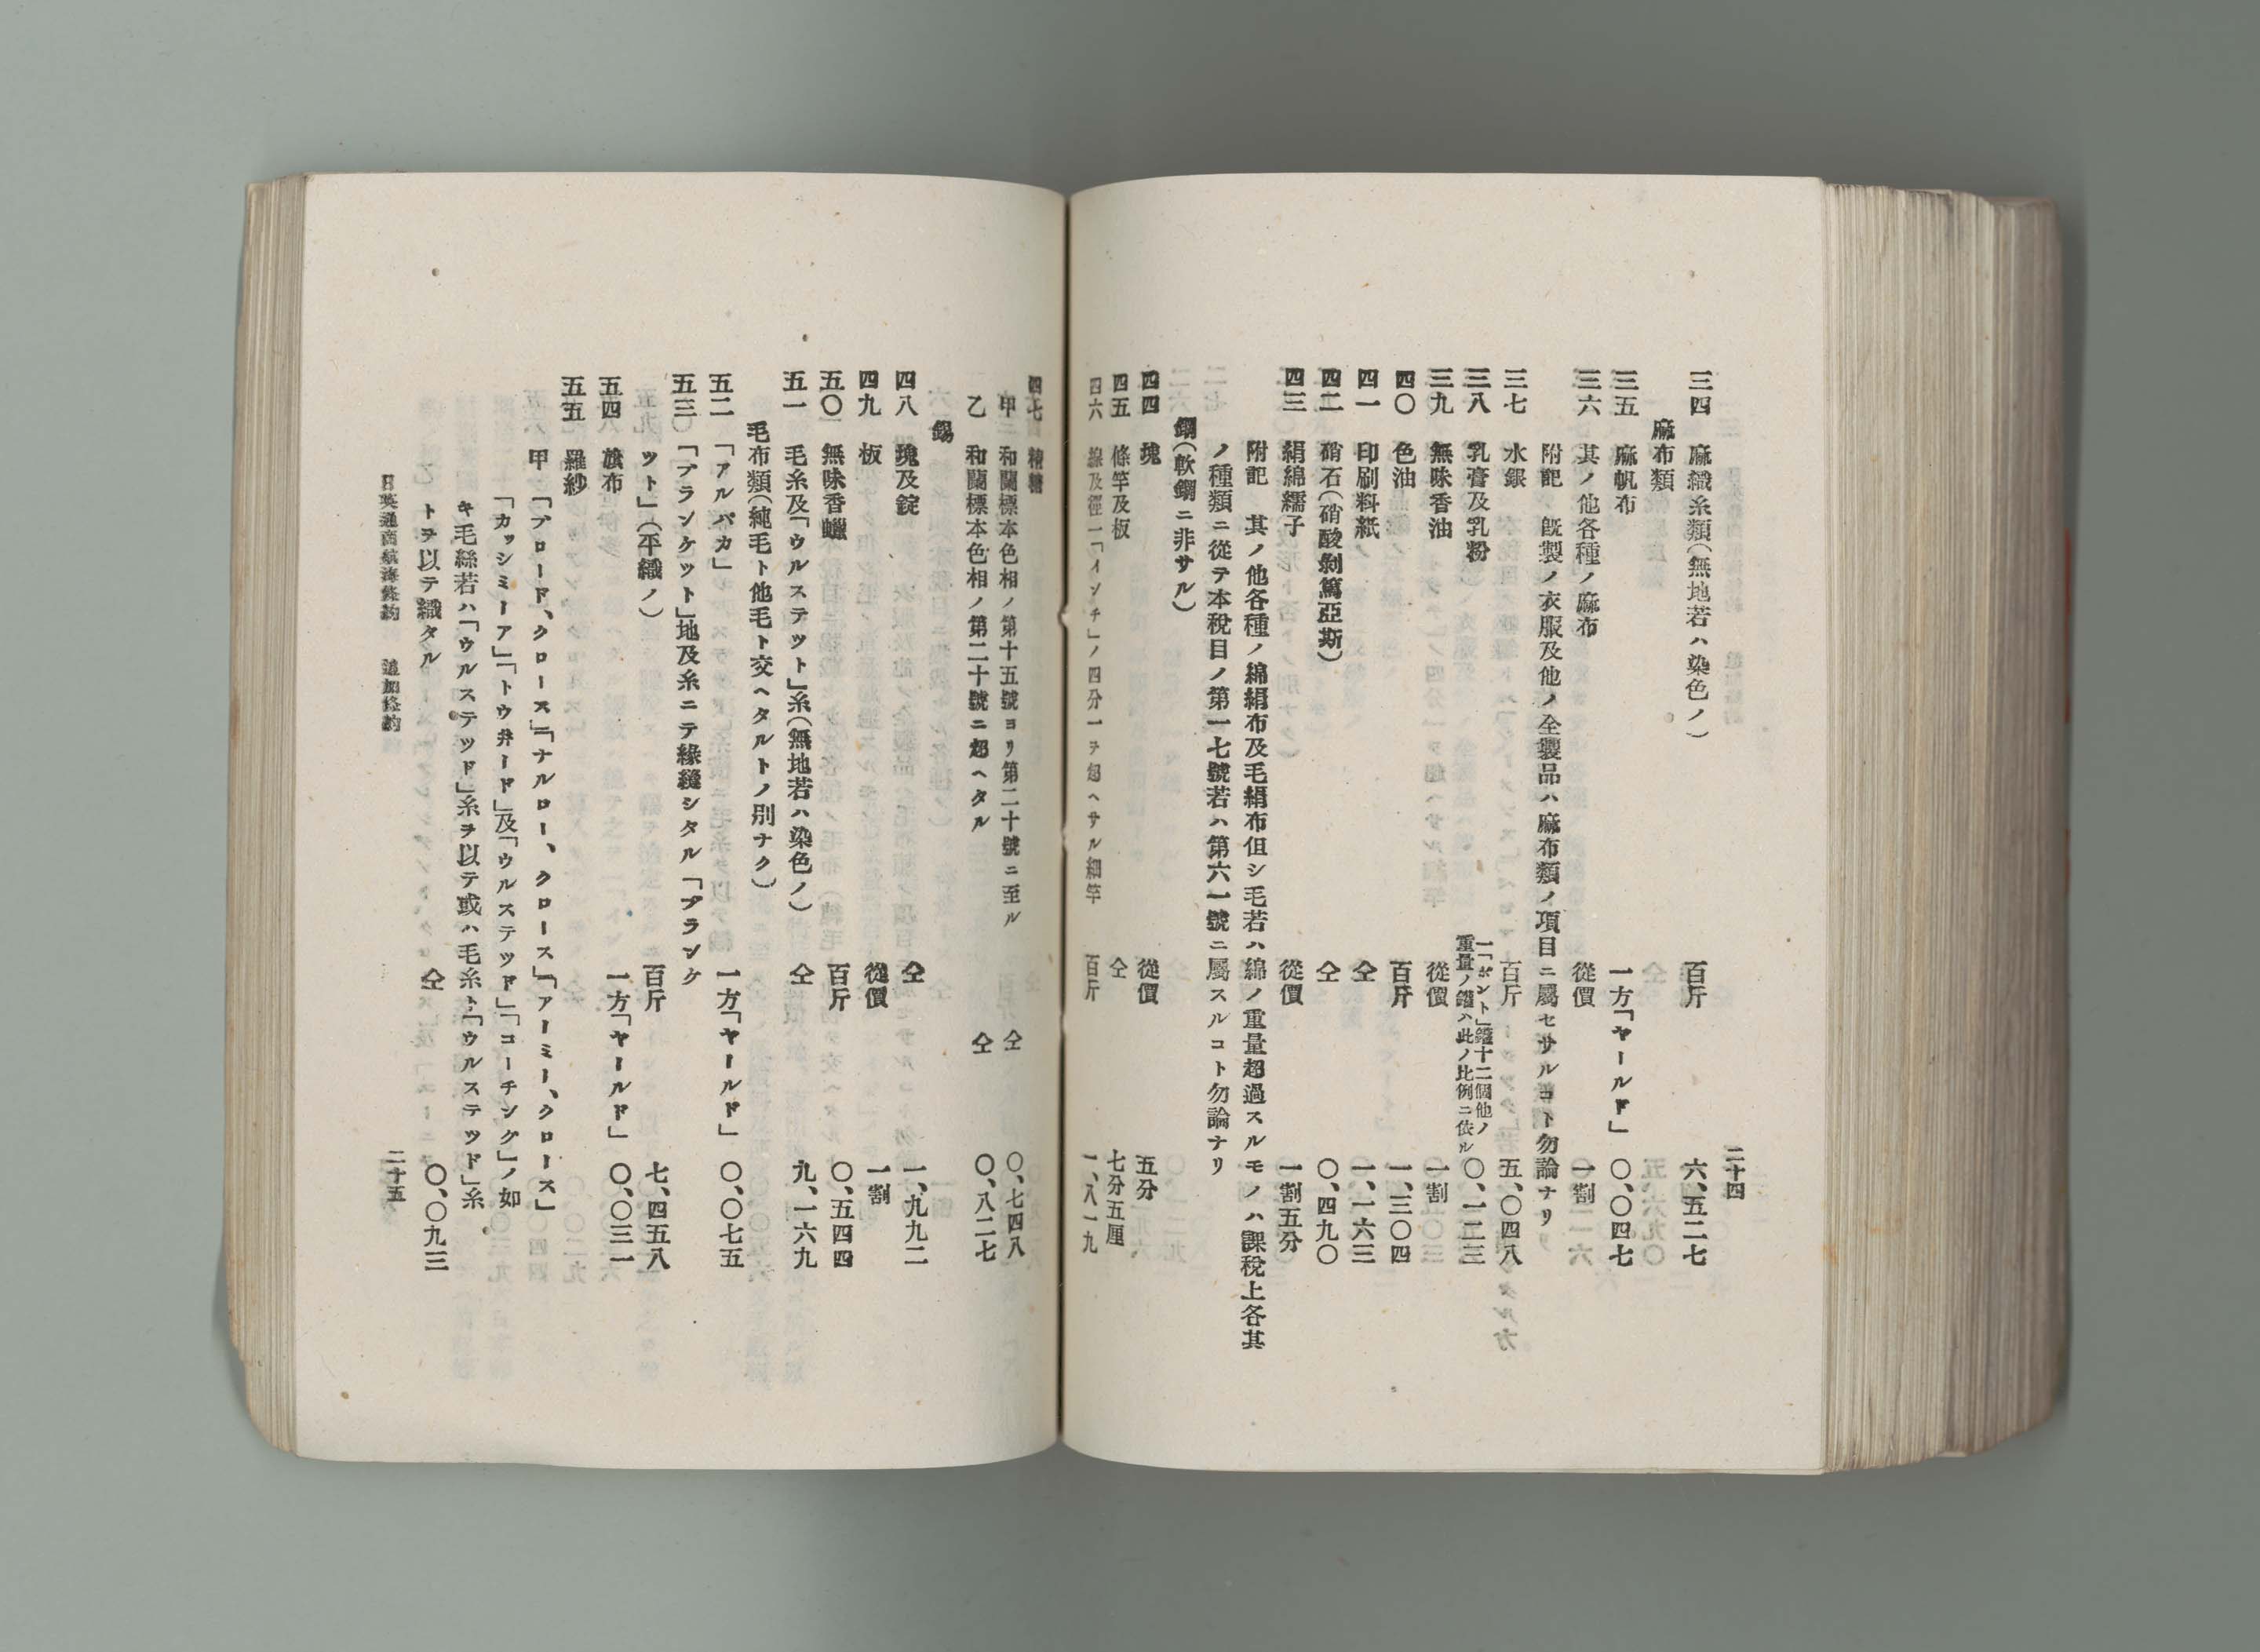 二十四
三四 麻織糸類（無地若ハ染色ノ） 百斤 六、五二七
麻布類
三五 麻帆布 一方「ヤールド」 〇、〇四七
三六 其ノ他各種ノ麻布 從價 一割
附記 既製ノ衣服及他ノ全製品ハ麻布類ノ項目ニ屬セサルコト勿論ナリ
三七 水銀 百斤 五、〇四八
三八 乳膏及乳粉 一「ポント」鑵十二個他ノ重量ノ鑵ハ此ノ比例ニ依ル 〇、一二三
三九 無味香油 從價 一割
四〇 色油 百斤 一、三〇四
四一 印刷料紙 仝 一、一六三
四二 硝石（硝酸剝篤亞斯） 仝 〇、四九〇
四三 絹綿繻子 從價 一割五分
附記 其ノ他各種ノ綿絹布及毛絹布但シ毛若ハ綿ノ重量超過スルモノハ課稅上各其
ノ種類ニ從テ本稅目ノ第一七號若ハ第六一號ニ屬スルコト勿論ナリ
鋼（軟鋼ニ非サル）
四四 塊 從價 五分
四五 條竿及板 仝 七分五厘
四六 線及徑一「インチ」ノ四分一ヲ超ヘサル細竿 百斤 一、八一九
四七 精糖
甲 和蘭標本色相ノ第十五號ヨリ第二十號ニ至ル 仝 〇、七四八
乙 和蘭標本色相ノ第二十號ニ超ヘタル 仝 〇、八二七
錫
四八 塊及錠 仝 一、九九二
四九 板 從價 一割
五〇 無味香蠟 百斤 〇、五四四
五一 毛糸及「ウルステット」糸（無地若ハ染色ノ） 仝 九、一六九
毛布類（純毛ト他毛ト交ヘタルトノ別ナク）
五二 「アルパカ」 一方「ヤールド」 〇、〇七五
五三 「ブランケット」地及糸ニテ緣縫シタル「ブランケ
ット」（平織ノ） 百斤 七、四五八
五四 旗布 一方「ヤールド」 〇、〇三一
五五 羅紗
甲 「ブロード、クロース」「ナルロー、クロース」「アーミー、クロース」
「カッシミーア」「トウ井ード」及「ウルステッド」「コーチング」ノ如
キ毛絲若ハ「ウルステッド」糸ヲ以テ或ハ毛糸ト「ウルステッド」糸
トヲ以テ織タル 仝 〇、〇九三
日英通商航海條約 追加條約 二十五